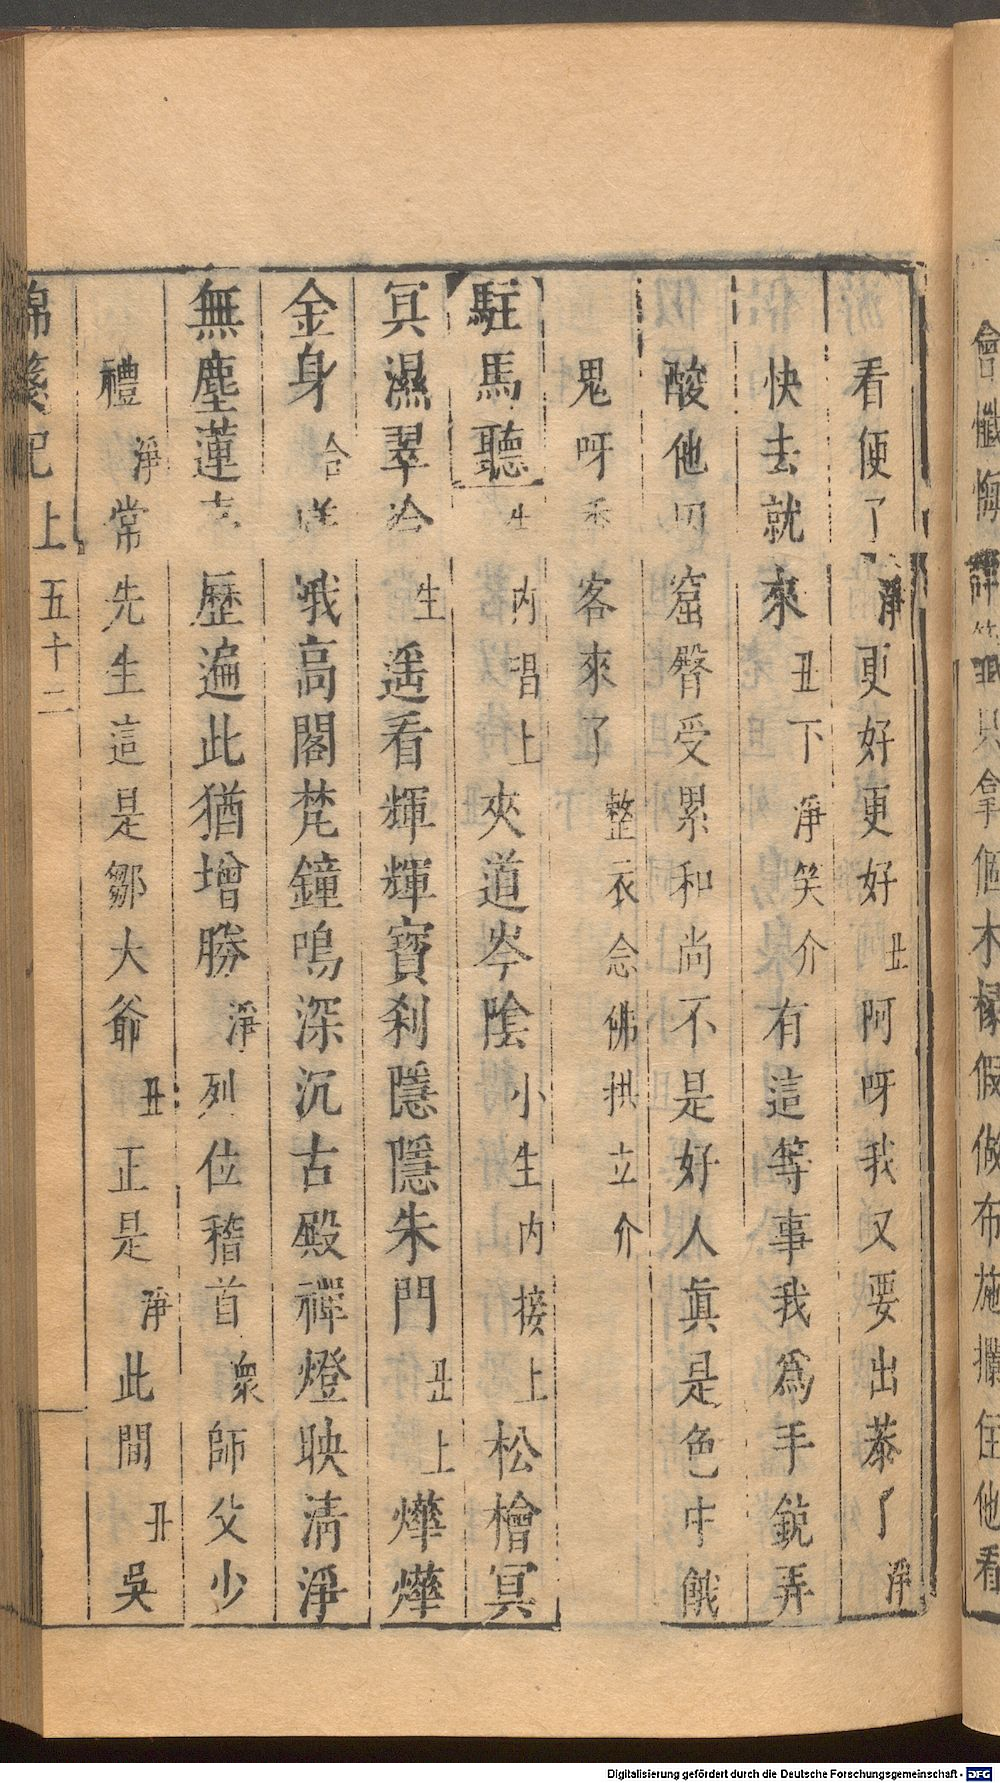 會懺悔只拿個木椽假做布施攔住他看
看便了淨更好更好丑阿呀我又要出恭了淨
快去就來丑下淨笑介有這等事我爲手銃弄
酸他窟臀受累和尚不是好人眞是色中餓
鬼呀客來了整衣念佛拱立介
駐馬聽生内唱上夾道岑陰小生内接上松檜冥
冥濕翠冷生遥看輝輝寳刹隱隱朱門丑上燁燁
金身合峨高閣梵鐘鳴深沉古殿禪燈映清淨
無塵蓮歷遍此猶增勝淨列位稽首衆師父少
禮淨常先生這是鄒大爺丑正是淨此間丑吳
錦箋記上五十二
Digitalisierung gefördert durch die Deutsche Forschungsgemeinschaft - DFG